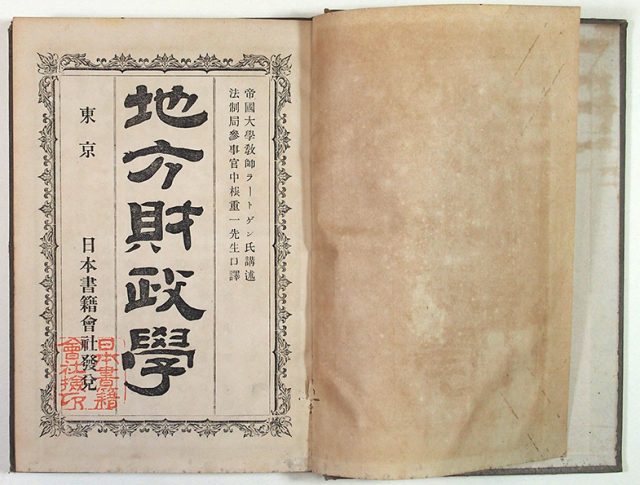 帝國大學敎師ラートゲン氏講述
法制局參事官中根重一先生口譯
地方財政學
東京 日本書籍會社發兌
日本書籍
會社檢印